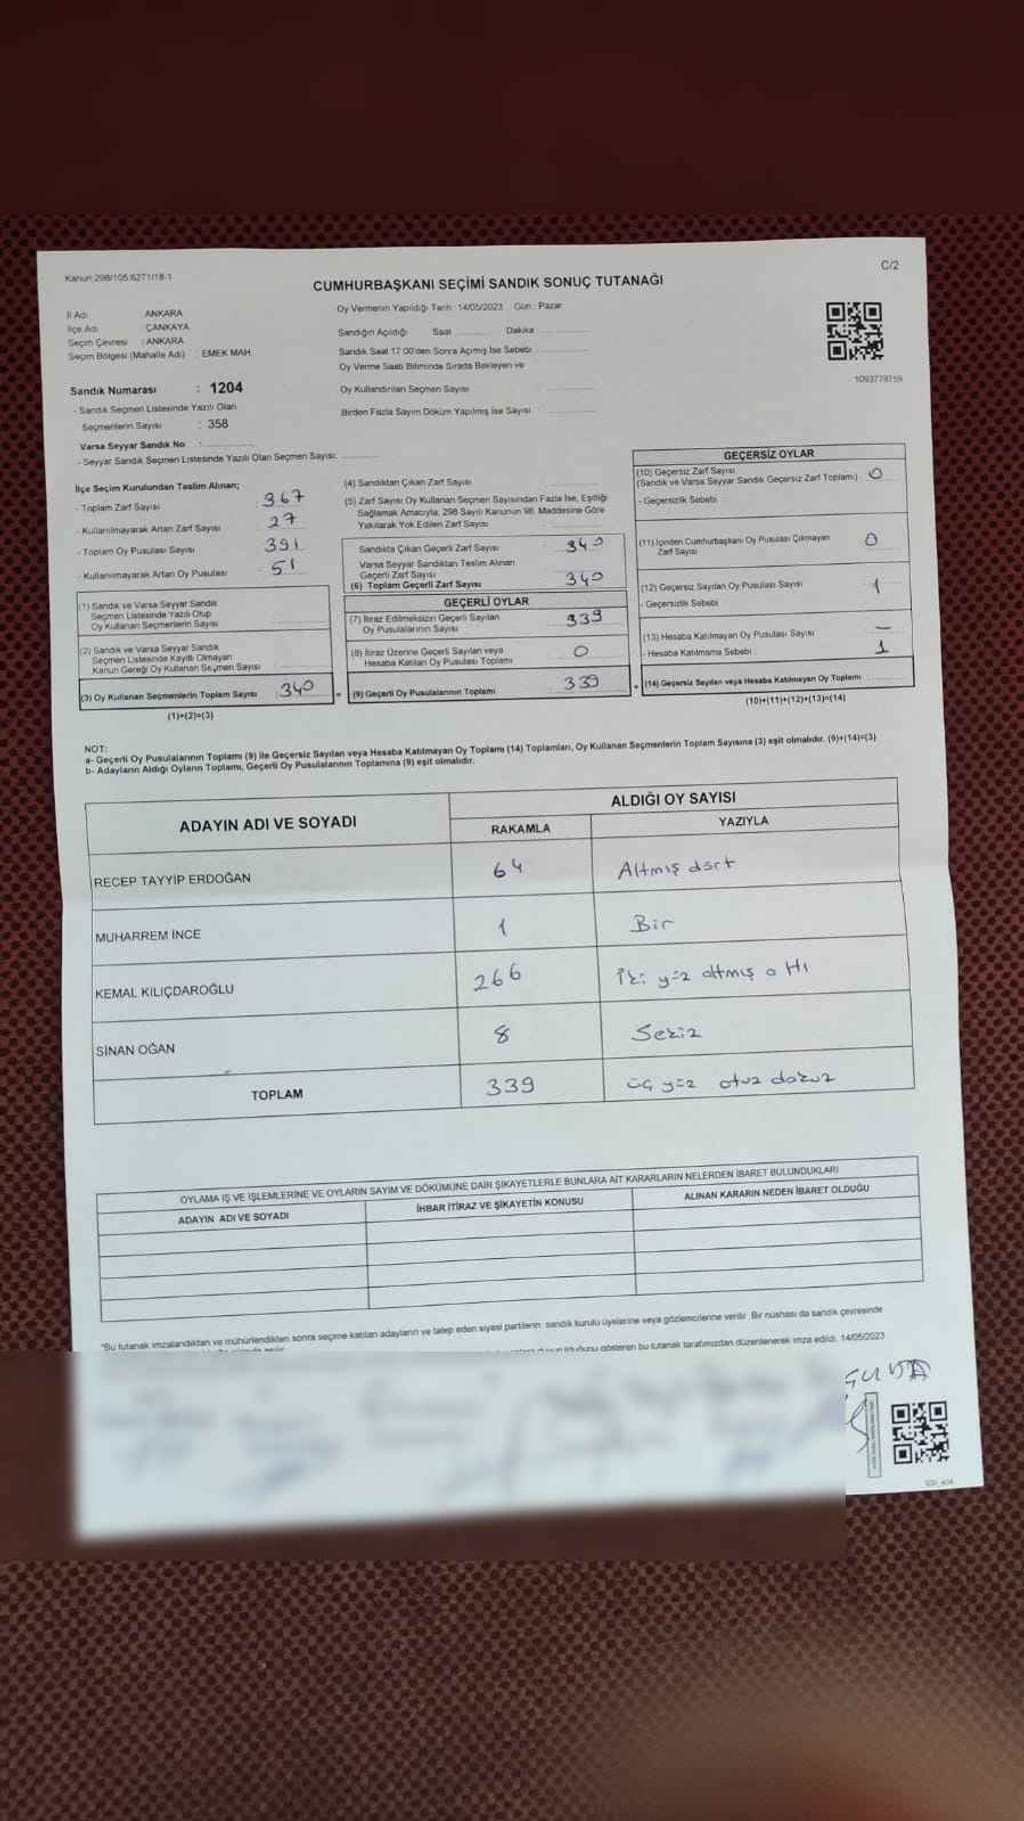 Kanun:298/105,6271/18-1
C/2
CUMHURBAŞKANI SEÇİMİ SANDIK SONUÇ TUTANAĞI
İl Adı : ANKARA
İlçe Adı : ÇANKAYA
Seçim Çevresi : ANKARA
Seçim Bölgesi (Mahalle Adı) : EMEK MAH
Sandık Numarası : 1204
- Sandık Seçmen Listesinde Yazılı Olan
Seçmenlerin Sayısı : 358
Varsa Seyyar Sandık No :
- Seyyar Sandık Seçmen Listesinde Yazılı Olan Seçmen Sayısı:
Oy Vermenin Yapıldığı Tarih : 14/05/2023 Gün : Pazar
Sandığın Açıldığı Saat Dakika
Sandık Saat 17:00'den Sonra Açılmış İse Sebebi
Oy Verme Saati Bitiminde Sırada Bekleyen ve
Oy Kullandırılan Seçmen Sayısı
Birden Fazla Sayım Döküm Yapılmış İse Sayısı
1093778759
İlçe Seçim Kurulundan Teslim Alınan;
- Toplam Zarf Sayısı : 367
- Kullanılmayarak Artan Zarf Sayısı : 27
- Toplam Oy Pusulası Sayısı : 391
- Kullanılmayarak Artan Oy Pusulası : 51
(1) Sandık ve Varsa Seyyar Sandık
Seçmen Listesinde Yazılı Olup
Oy Kullanan Seçmenlerin Sayısı
(2) Sandık ve Varsa Seyyar Sandık
Seçmen Listesinde Kayıtlı Olmayan
Kanun Gereği Oy Kullanan Seçmen Sayısı
(3) Oy Kullanan Seçmenlerin Toplam Sayısı : 340
(1)+(2)=(3)
(4) Sandıktan Çıkan Zarf Sayısı
(5) Zarf Sayısı Oy Kullanan Seçmen Sayısından Fazla İse, Eşitliği
Sağlamak Amacıyla, 298 Sayılı Kanunun 98. Maddesine Göre
Yakılarak Yok Edilen Zarf Sayısı
Sandıkta Çıkan Geçerli Zarf Sayısı 340
Varsa Seyyar Sandıktan Teslim Alınan
Geçerli Zarf Sayısı
(6) Toplam Geçerli Zarf Sayısı 340
GEÇERLİ OYLAR
(7) İtiraz Edilmeksizin Geçerli Sayılan
Oy Pusulalarının Sayısı 339
(8) İtiraz Üzerine Geçerli Sayılan veya
Hesaba Katılan Oy Pusulası Toplamı 0
= (9) Geçerli Oy Pusulalarının Toplamı 339
GEÇERSİZ OYLAR
(10) Geçersiz Zarf Sayısı
(Sandık ve Varsa Seyyar Sandık Geçersiz Zarf Toplamı) 0
- Geçersizlik Sebebi
(11) İçinden Cumhurbaşkanı Oy Pusulası Çıkmayan
Zarf Sayısı 0
(12) Geçersiz Sayılan Oy Pusulası Sayısı 1
- Geçersizlik Sebebi
(13) Hesaba Katılmayan Oy Pusulası Sayısı –
- Hesaba Katılmama Sebebi : 1
+ (14) Geçersiz Sayılan veya Hesaba Katılmayan Oy Toplamı
(10)+(11)+(12)+(13)=(14)
NOT:
a- Geçerli Oy Pusulalarının Toplamı (9) ile Geçersiz Sayılan veya Hesaba Katılmayan Oy Toplamı (14) Toplamları, Oy Kullanan Seçmenlerin Toplam Sayısına (3) eşit olmalıdır. (9)+(14)=(3)
b- Adayların Aldığı Oyların Toplamı, Geçerli Oy Pusulalarının Toplamına (9) eşit olmalıdır.
ADAYIN ADI VE SOYADI ALDIĞI OY SAYISI
RAKAMLA YAZIYLA
RECEP TAYYİP ERDOĞAN 64 Altmış dört
MUHARREM İNCE 1 Bir
KEMAL KILIÇDAROĞLU 266 İki yüz altmış altı
SİNAN OĞAN 8 Sekiz
TOPLAM 339 üç yüz otuz dokuz
OYLAMA İŞ VE İŞLEMLERİNE VE OYLARIN SAYIM VE DÖKÜMÜNE DAİR ŞİKAYETLERLE BUNLARA AİT KARARLARIN NELERDEN İBARET BULUNDUKLARI
ADAYIN ADI VE SOYADI İHBAR İTİRAZ VE ŞİKAYETİN KONUSU ALINAN KARARIN NEDEN İBARET OLDUĞU
*Bu tutanak imzalandıktan ve mühürlendikten sonra seçime katılan adayların ve talep eden siyasi partilerin sandık kurulu üyelerine veya gözlemcilerine verilir. Bir nüshası da sandık çevresinde
olduğunu gösteren bu tutanak tarafımızdan düzenlenerek imza edildi. 14/05/2023